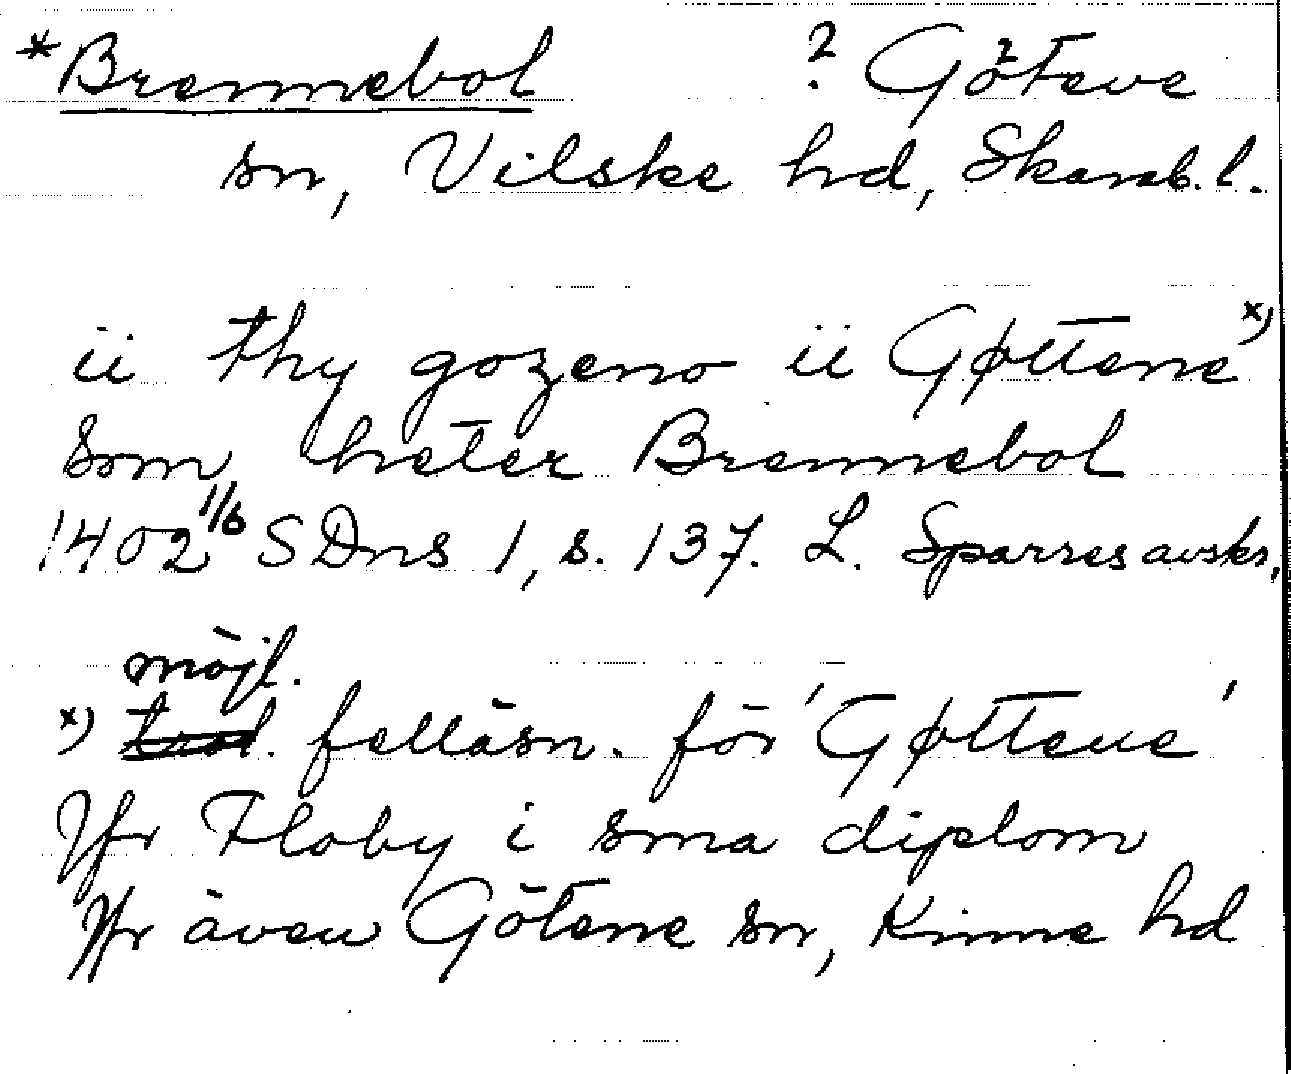 *Brennebol ? Göteve
sn, Vilske hd, Skarab. l.
ii thy gozeno ii Gøttene x)
som heter Brennebol
1402 1/6 SDns 1, s. 137. L. Sparres avskr.
möjl.
x) trol. felläsn. för 'Gøtteue'
Jfr Floby i sma diplom
Jfr även Götene sn, Kinne hd